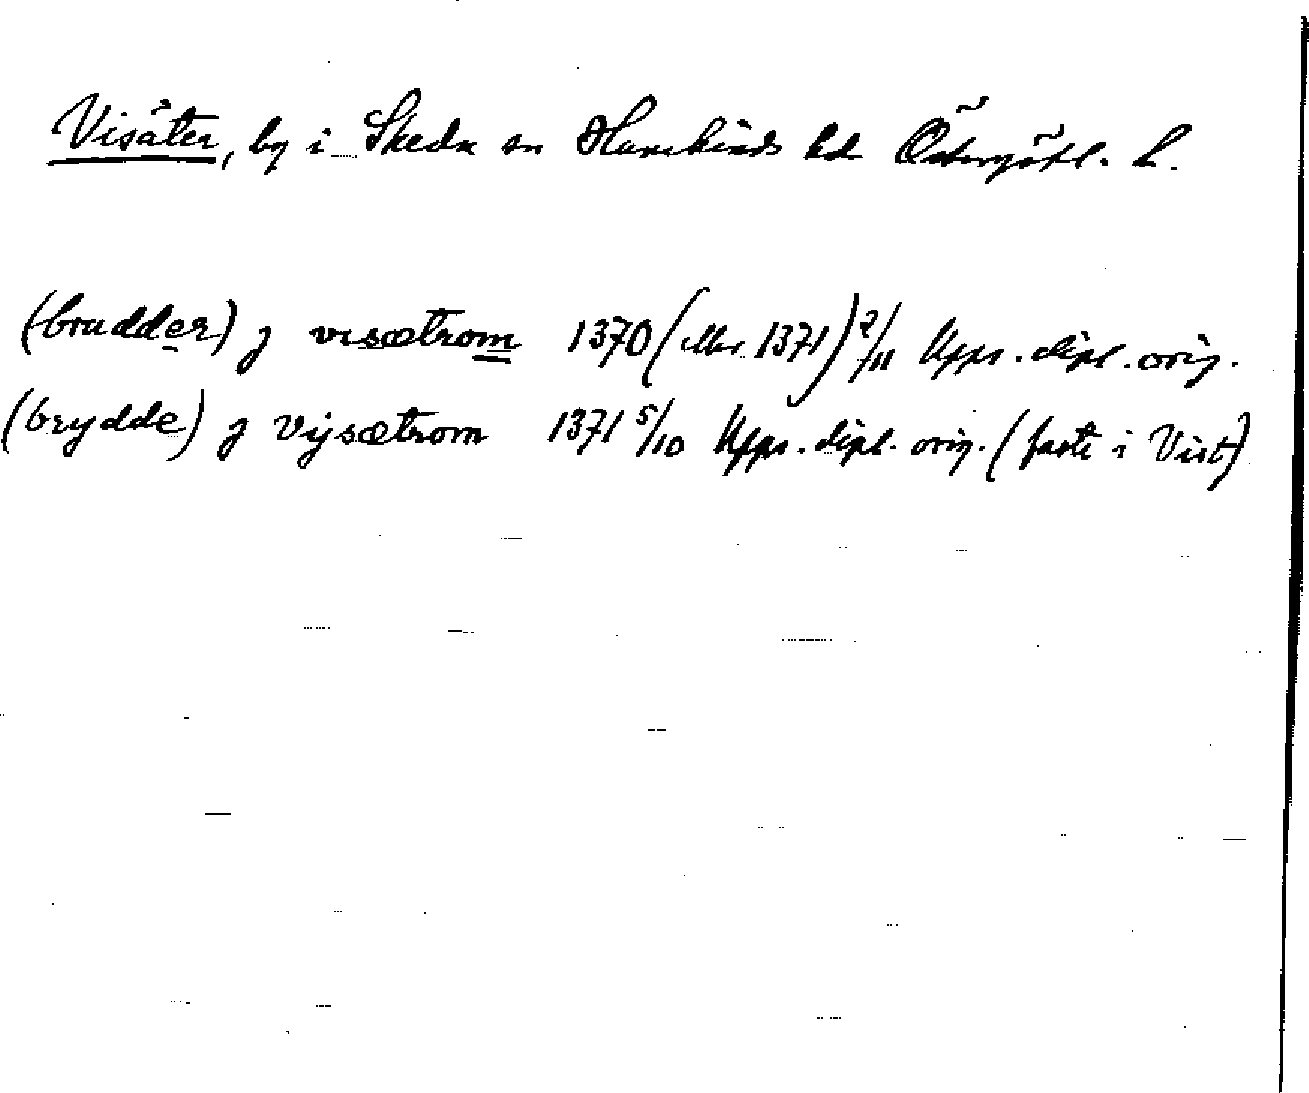 Visäter, by i Skeda sn Hanekinds hd Östergötl. l.
(brudder) j visætrom 1370 (eller 1371) 2/11 Upps. dipl. orig.
(brydde) j vijsætrom 1371 5/10 Upps. dipl. orig. (faste i Vist)